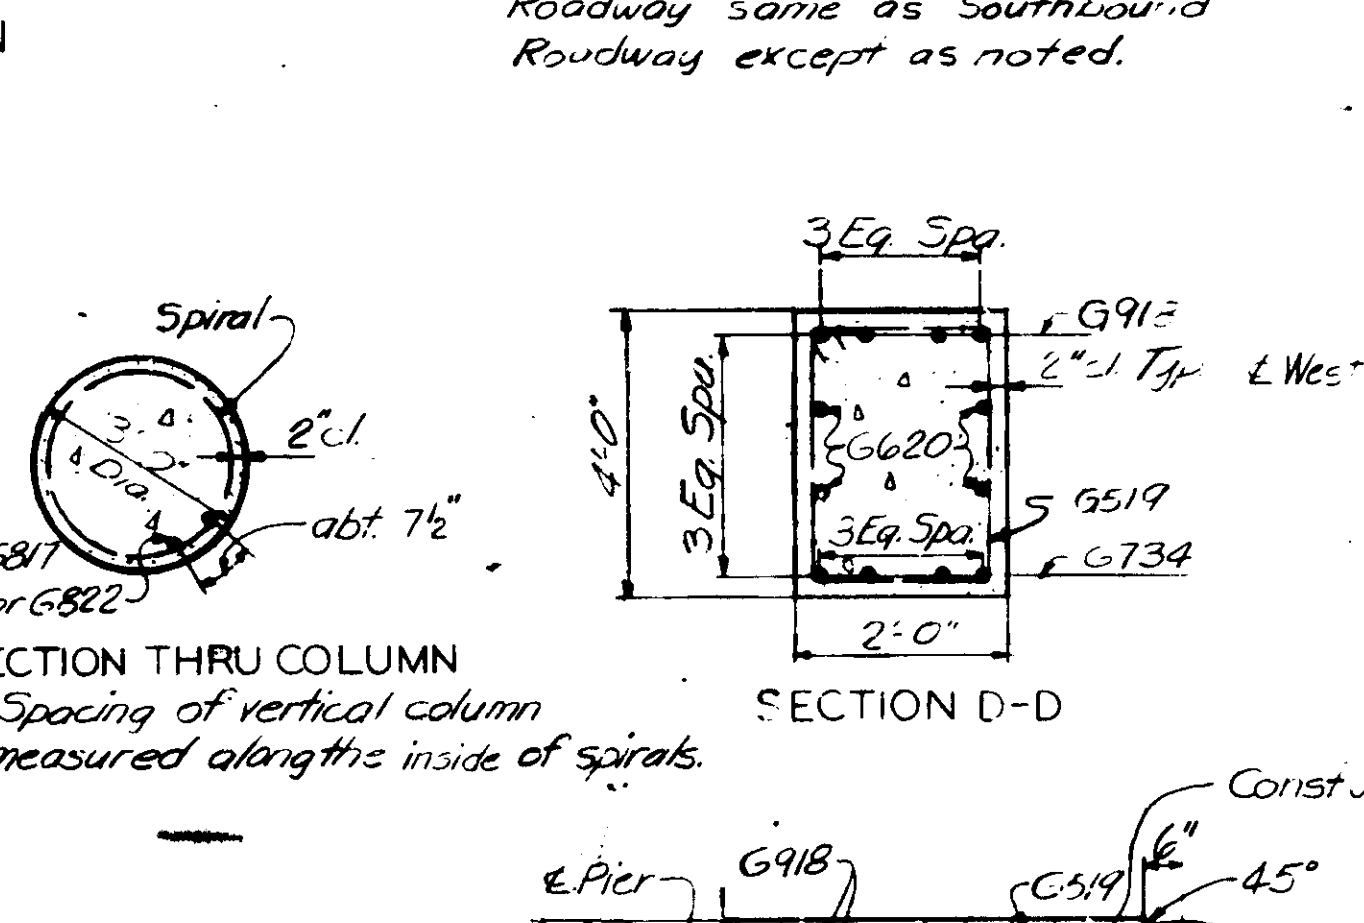 Roadway same as Southbound
Roadway except as noted.
3 Eq. Spa.
Spiral
2" cl.
3
Dia.
abt. 7½"
G817
or G822
SECTION THRU COLUMN
Spacing of vertical column
measured along the inside of spirals.
4'-0"
3 Eq. Spa.
2" cl. Typ.
℄ West
G620
G519
3 Eq. Spa.
G734
2'-0"
SECTION D-D
Const
6"
G918
℄ Pier
G519
45°